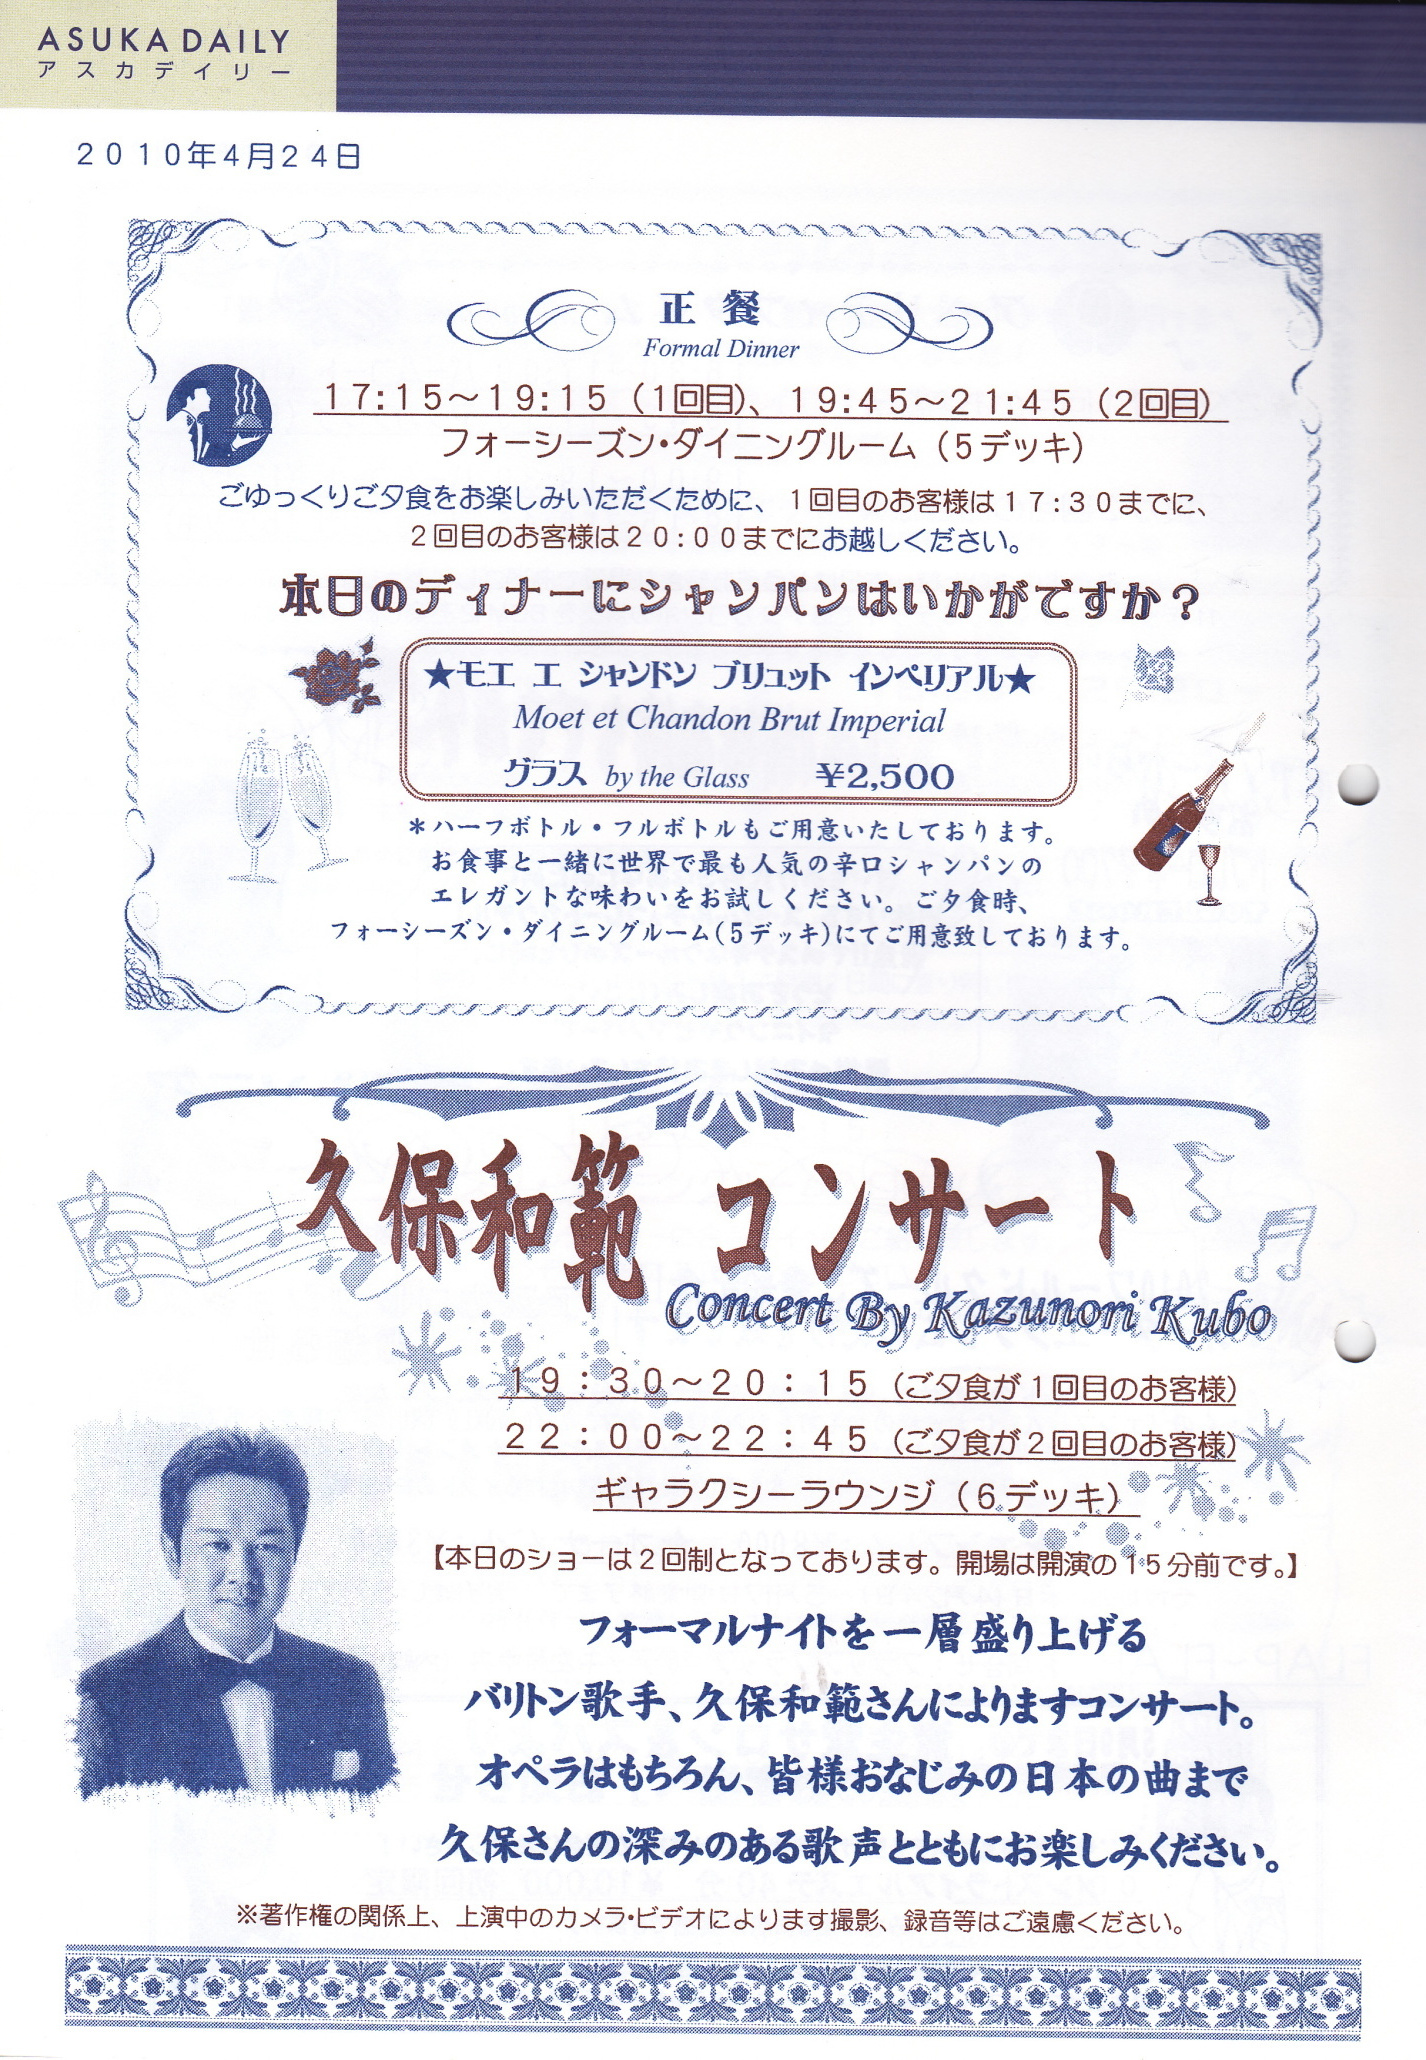 ASUKA DAILY
アスカデイリー
２０１０年４月２４日
正餐
Formal Dinner
１７:１５～１９:１５（１回目）、１９:４５～２１:４５（２回目）
フォーシーズン・ダイニングルーム（５デッキ）
ごゆっくりご夕食をお楽しみいただくために、１回目のお客様は１７:３０までに、
２回目のお客様は２０:００までにお越しください。
本日のディナーにシャンパンはいかがですか？
★モエ エ シャンドン ブリュット インペリアル★
Moet et Chandon Brut Imperial
グラス by the Glass ￥2,500
＊ハーフボトル・フルボトルもご用意いたしております。
お食事と一緒に世界で最も人気の辛口シャンパンの
エレガントな味わいをお試しください。ご夕食時、
フォーシーズン・ダイニングルーム(５デッキ)にてご用意致しております。
久保和範 コンサート
Concert By Kazunori Kubo
１９：３０～２０：１５（ご夕食が１回目のお客様）
２２：００～２２：４５（ご夕食が２回目のお客様）
ギャラクシーラウンジ（６デッキ）
【本日のショーは２回制となっております。開場は開演の１５分前です。】
フォーマルナイトを一層盛り上げる
バリトン歌手、久保和範さんによりますコンサート。
オペラはもちろん、皆様おなじみの日本の曲まで
久保さんの深みのある歌声とともにお楽しみください。
※著作権の関係上、上演中のカメラ・ビデオによります撮影、録音等はご遠慮ください。